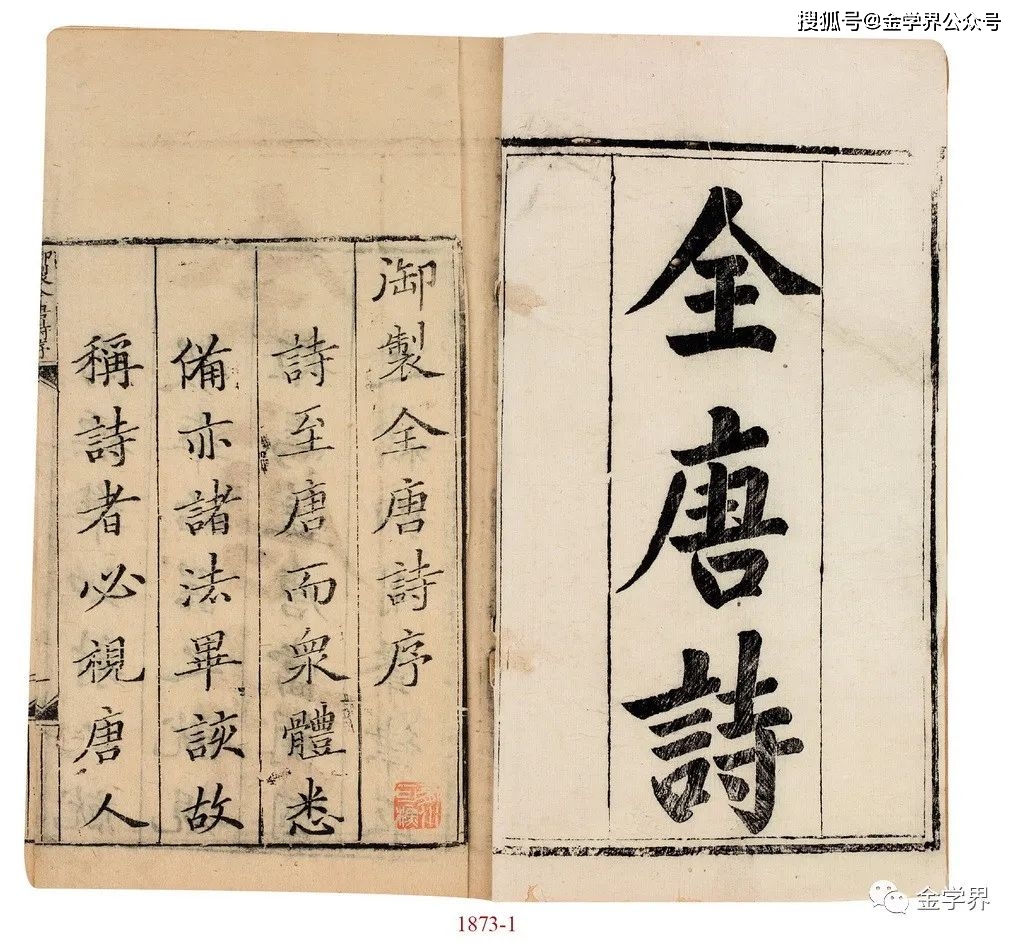 搜狐号@金学界公众号
全唐詩
御製全唐詩序
詩至唐而衆體悉
備亦諸法畢該故
稱詩者必視唐人
金学界
1873-1